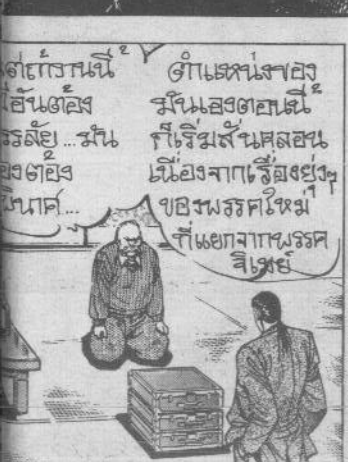 ถ้างานนี้
ต้อง
มัน
ต้อง
พินาศ...
ตำแหน่งของ
มันเองตอนนี้
ก็เริ่มสั่นคลอน
เนื่องจากเรื่องยุ่งๆ
ของพรรคใหม่
ที่แยกจากพรรค
จิเมย์